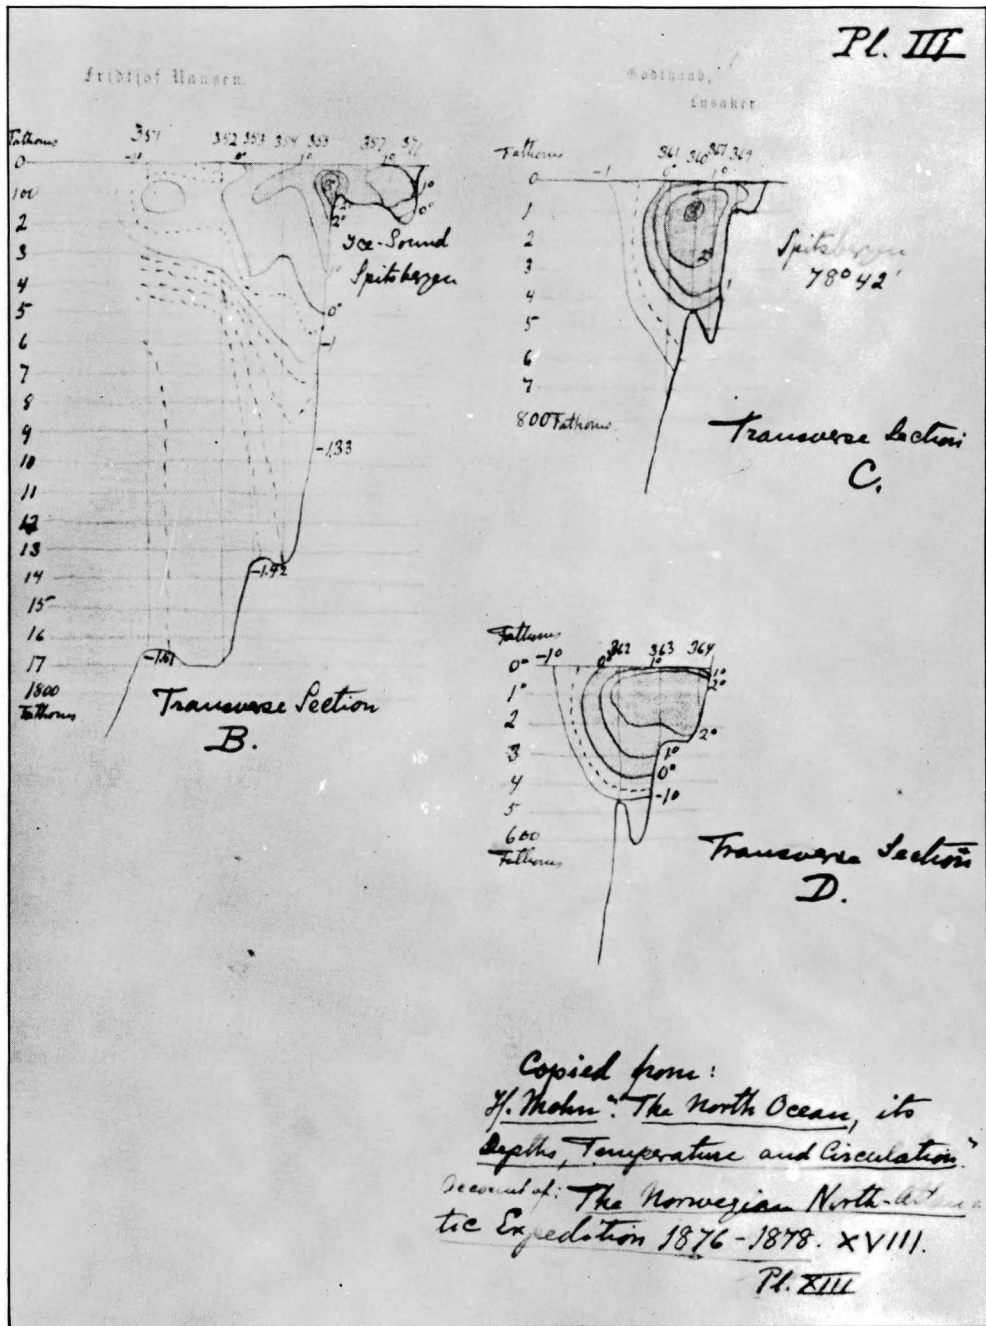 Pl. III
Fridtjof Nansen.
Godthaab,
Lysaker
Fathoms 351 352 353 354 355 357 371
-1° 0° 1° 1°
0
100
2
3
4
5
6
7
8
9
10
11
12
13
14
15
16
17
1800
Fathoms
3°
2°
2°
1°
0°
Ice-Sound
Spitsbergen
1°
0°
-1
-1.33
-1.42
-1.61
Transverse Section
B.
Fathoms 361 360 367 369
-1 0° 1°
0
1
2
3
4
5
6
7
800 Fathoms.
2°
1
Spitsbergen
78° 42'
Transverse Section
C.
Fathoms 362 363 364
0° -1° 0° 1°
1°
2
3
4
5
600
Fathoms
1°
2°
2°
1°
0°
-1°
Transverse Section
D.
Copied from:
H. Mohn: "The North Ocean, its
Depths, Temperature and Circulation."
Account of: The Norwegian North-Atlan
tic Expedition 1876-1878. XVIII.
Pl. XIII